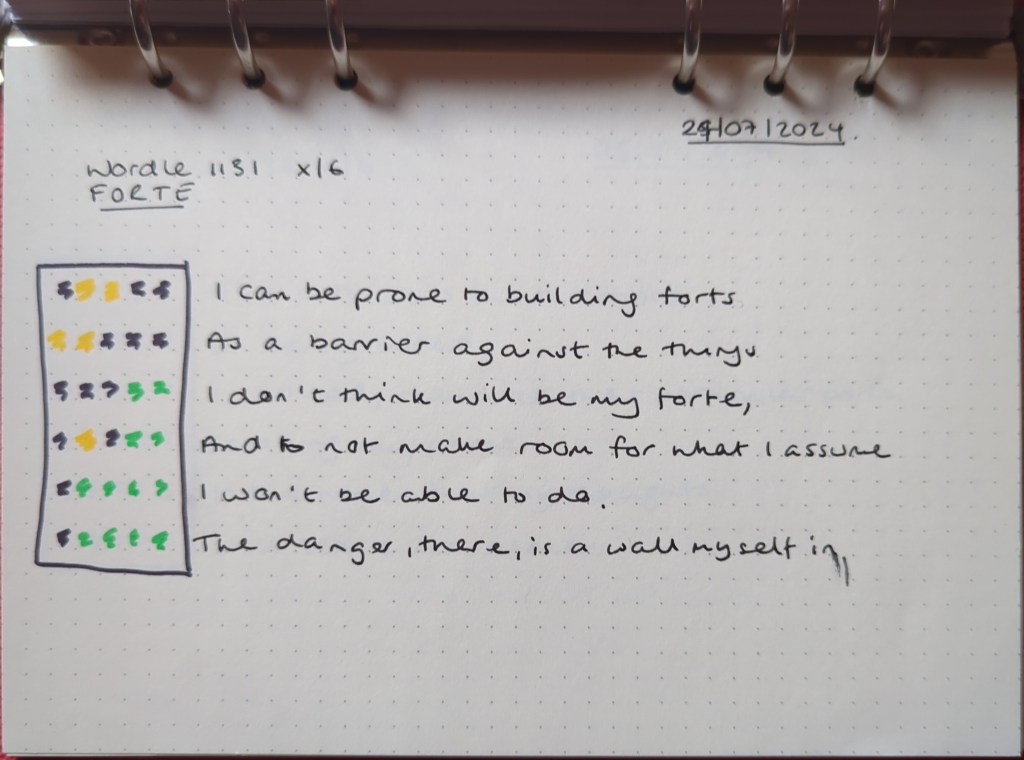 24/07/2024.
Wordle 1131 x/6
FORTE
I can be prone to building forts
As a barrier against the things
I don't think will be my forte,
And to not make room for what I assume
I won't be able to do.
The danger, there, is a wall myself in,